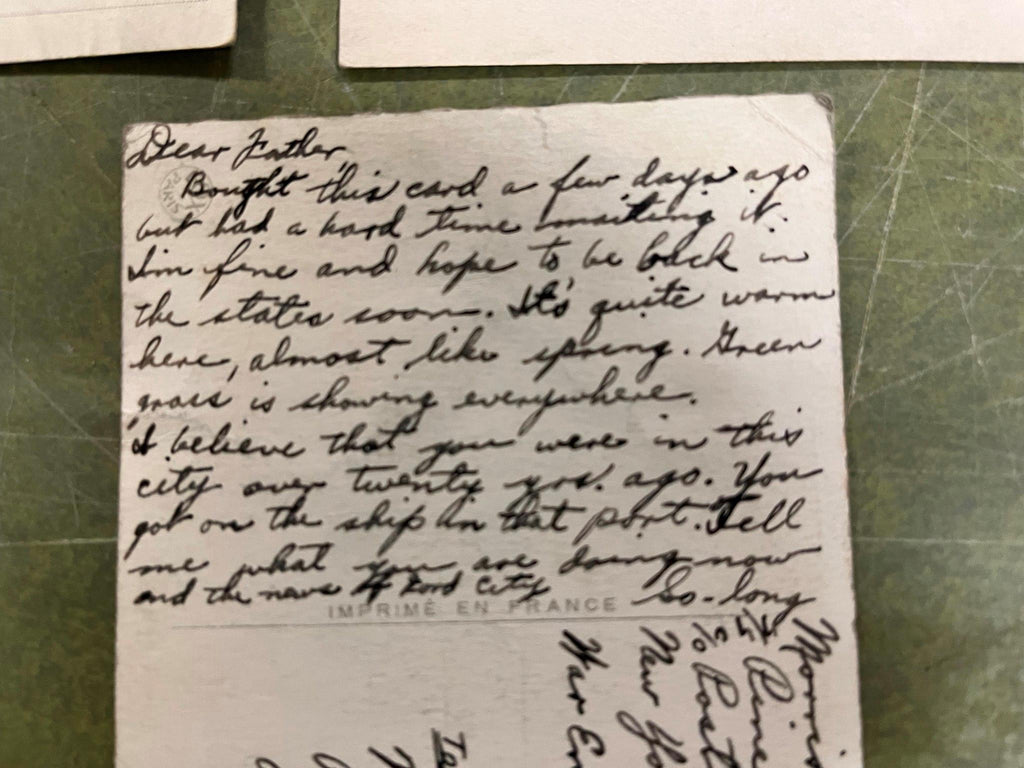 Dear Father,
Bought this card a few days ago
but had a hard time mailing it.
I'm fine and hope to be back in
the states soon. It's quite warm
here, almost like spring. Green
grass is showing everywhere.
I believe that you were in this
city over twenty yrs. ago. You
got on the ship in that port. Tell
me what you are doing now
and the news of Ford City
So-long
IMPRIMÉ EN FRANCE
Morris
Pine
Post
New Yo
War